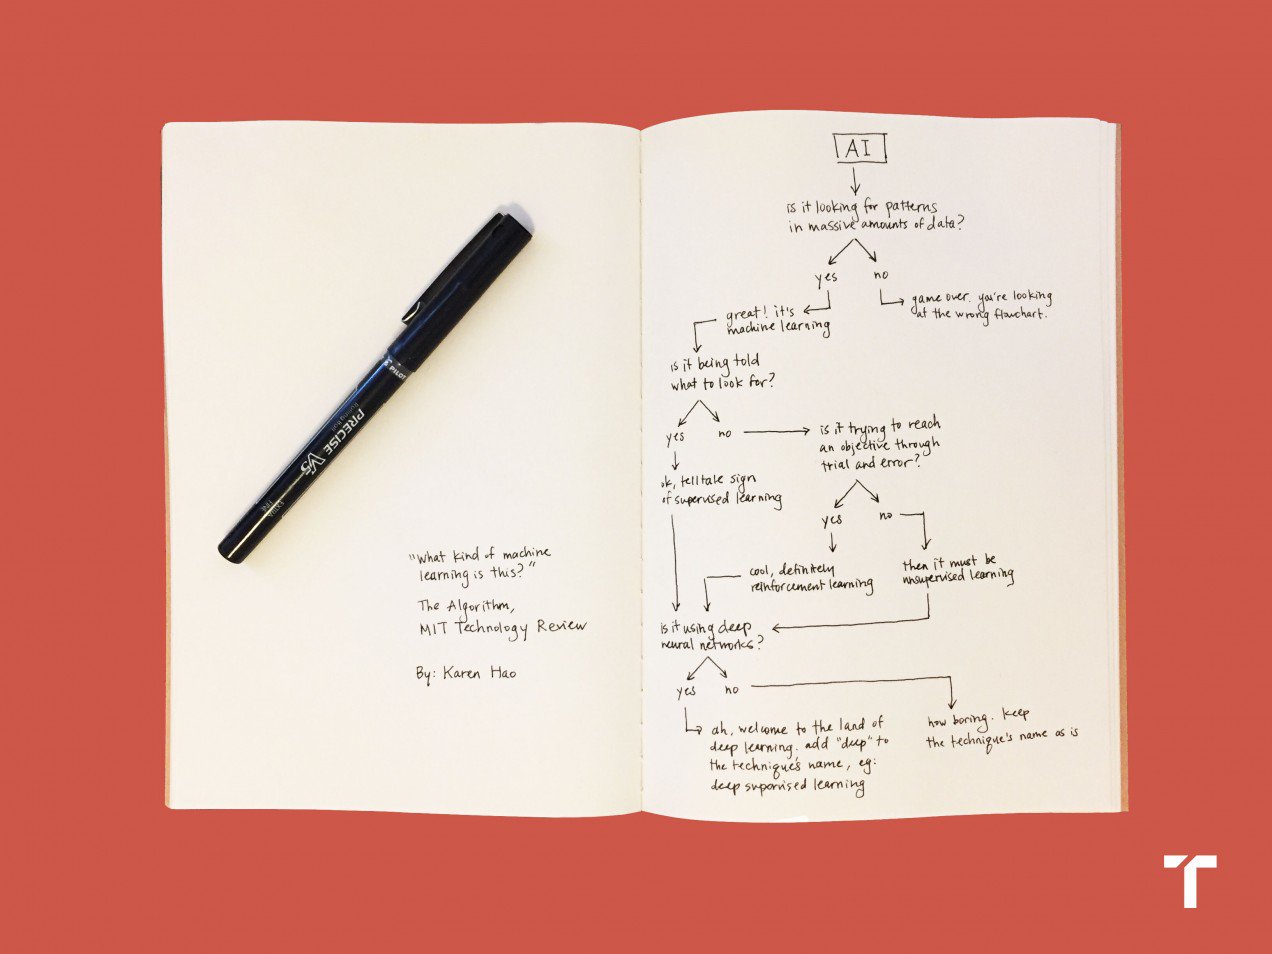 PILOT
PRECISE V5
Rolling Ball
EXTRA
FINE
"What kind of machine
learning is this?"
The Algorithm,
MIT Technology Review
By: Karen Hao
AI
is it looking for patterns
in massive amounts of data?
yes
no
great! it's
machine learning
game over. you're looking
at the wrong flowchart.
is it being told
what to look for?
yes
no
is it trying to reach
an objective through
trial and error?
ok, telltale sign
of supervised learning
yes
no
cool, definitely
reinforcement learning
then it must be
unsupervised learning
is it using deep
neural networks?
yes
no
ah, welcome to the land of
deep learning. add "deep" to
the technique's name, eg:
deep supervised learning
how boring. keep
the technique's name as is
T